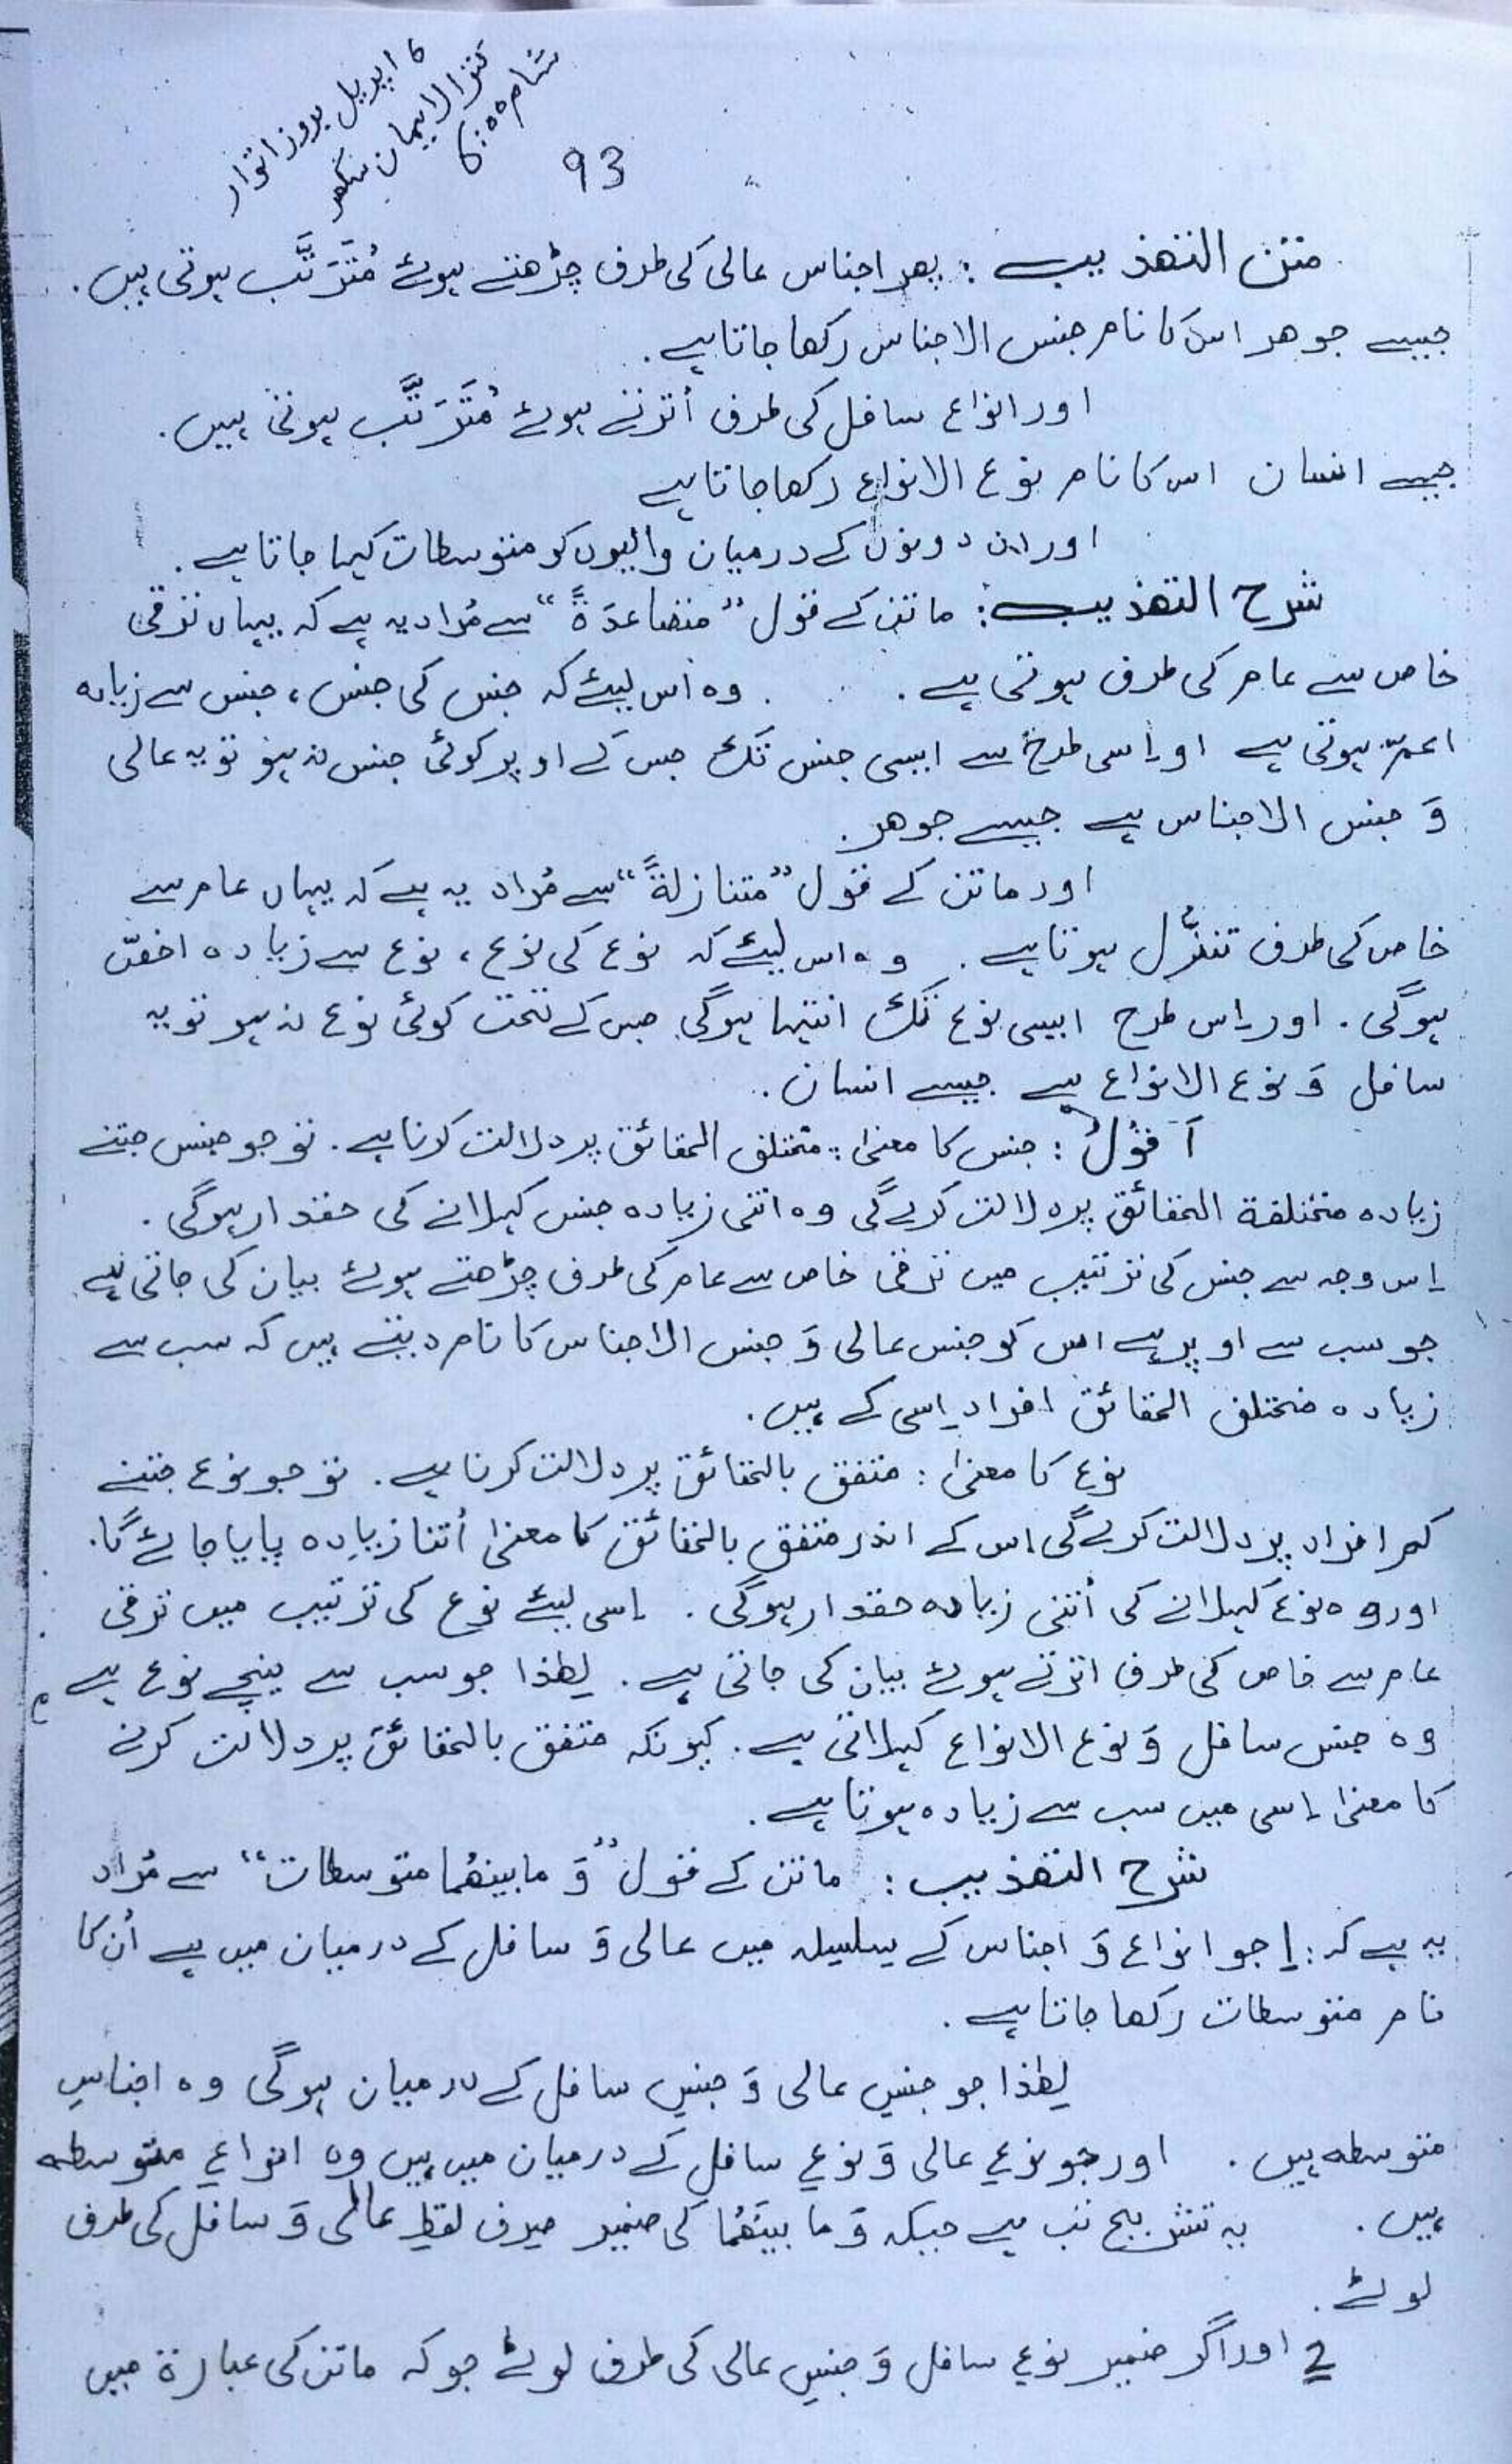 6 اپریل بروز اتوار
کنزالایمان سکھر
شام 6:00
93
متن التھذیب : پھر اجناس عالی کی طرف چڑھتے ہوئے مُتَرَتَّب ہوتی ہیں.
جیسے جوھر اس کا نام جنس الاجناس رکھا جاتا ہے.
اور انواع سافل کی طرف اُترتے ہوئے مُتَرَتَّب ہوتی ہیں.
جیسے انسان اس کا نام نوع الانواع رکھا جاتا ہے
اور ان دونوں کے درمیان والیوں کو متوسطات کہا جاتا ہے.
شرح التھذیب : ماتن کے قول ”متصاعدَۃً“ سے مُراد یہ ہے کہ یہاں ترقی
خاص سے عام کی طرف ہوتی ہے. وہ اس لیئے کہ جنس کی جنس، جنس سے زیادہ
اعمّ ہوتی ہے اور اسی طرح سے ایسی جنس تک جس کے اوپر کوئی جنس نہ ہو تو یہ عالی
وَ جنس الاجناس ہے جیسے جوھر.
اور ماتن کے قول ”متنازلۃً“ سے مُراد یہ ہے کہ یہاں عام سے
خاص کی طرف تنزُّل ہوتا ہے. وہ اس لیئے کہ نوع کی نوع، نوع سے زیادہ اخصّ
ہوگی. اور اِس طرح ایسی نوع تک انتہا ہوگی جس کے تحت کوئی نوع نہ ہو تو یہ
سافل وَ نوع الانواع ہے جیسے انسان.
اَقُوْلُ : جنس کا معنیٰ : مختلف الحقائق پر دلالت کرنا ہے. تو جو جنس جتنے
زیادہ مختلفۃ الحقائق پر دلالت کرے گی وہ اتنی زیادہ جنس کہلانے کی حقدار ہوگی.
اِس وجہ سے جنس کی ترتیب میں ترقی خاص سے عام کی طرف چڑھتے ہوئے بیان کی جاتی ہے
جو سب سے اوپر ہے اس کو جنس عالی وَ جنس الاجناس کا نام دیتے ہیں کہ سب سے
زیادہ مختلف الحقائق افراد اِسی کے ہیں.
نوع کا معنیٰ : متفق بالحقائق پر دلالت کرنا ہے. تو جو نوع جتنے
کم افراد پر دلالت کرے گی اس کے اندر متفق بالحقائق کا معنیٰ اُتنا زیادہ پایا جائے گا.
اور وہ نوع کہلانے کی اُتنی زیادہ حقدار ہوگی. اِسی لیئے نوع کی ترتیب میں ترقی
عام سے خاص کی طرف اترتے ہوئے بیان کی جاتی ہے. لھٰذا جو سب سے نیچے نوع ہے
وہ جنس سافل وَ نوع الانواع کہلاتی ہے. کیونکہ متفق بالحقائق پر دلالت کرنے
کا معنیٰ اِسی میں سب سے زیادہ ہوتا ہے.
شرح التھذیب : ماتن کے قول ”وَ ما بینھُما متوسطات“ سے مُراد
یہ ہے کہ : 1 جو انواع وَ اجناس کے سلسلہ میں عالی وَ سافل کے درمیان میں ہے اُن کا
نام متوسطات رکھا جاتا ہے.
لھٰذا جو جنسِ عالی وَ جنسِ سافل کے درمیان ہوگی وہ اجناسِ
متوسطہ ہیں. اور جو نوعِ عالی وَ نوعِ سافل کے درمیان میں ہیں وہ انواعِ متوسطہ
ہیں. یہ تشریح تب ہے جبکہ وَ ما بینَھُما کی ضمیر صِرف لفظِ عالی وَ سافل کی طرف
لوٹے.
2 اور اگر ضمیر نوعِ سافل وَ جنسِ عالی کی طرف لوٹے جو کہ ماتن کی عبارۃ میں